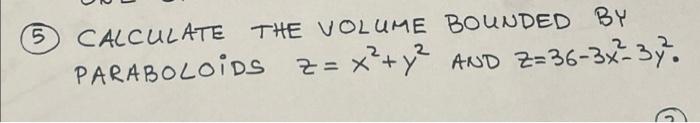 ⑤ CALCULATE THE VOLUME BOUNDED BY
PARABOLOIDS z = x²+y² AND z=36-3x²-3y².